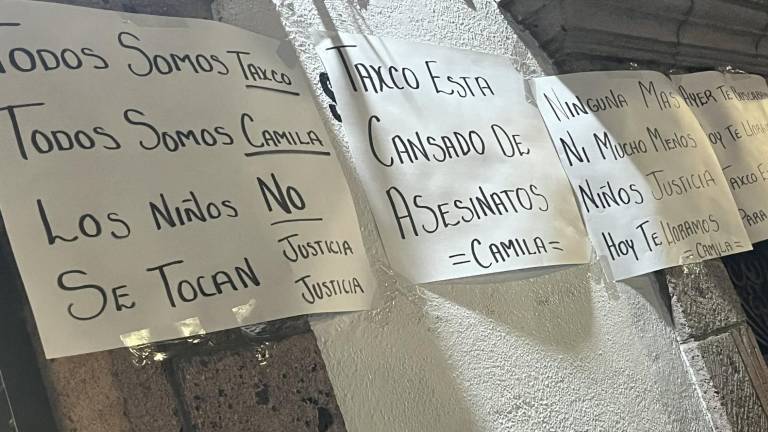 TODOS SOMOS TAXCO
TODOS SOMOS CAMILA
LOS NIÑOS NO
SE TOCAN JUSTICIA
JUSTICIA
TAXCO ESTA
CANSADO DE
ASESINATOS
=CAMILA=
NINGUNA MAS
NI MUCHO MENOS
NIÑOS JUSTICIA
HOY TE LLORAMOS
=CAMILA=
AYER TE
HOY TE
TAXCO
PARA